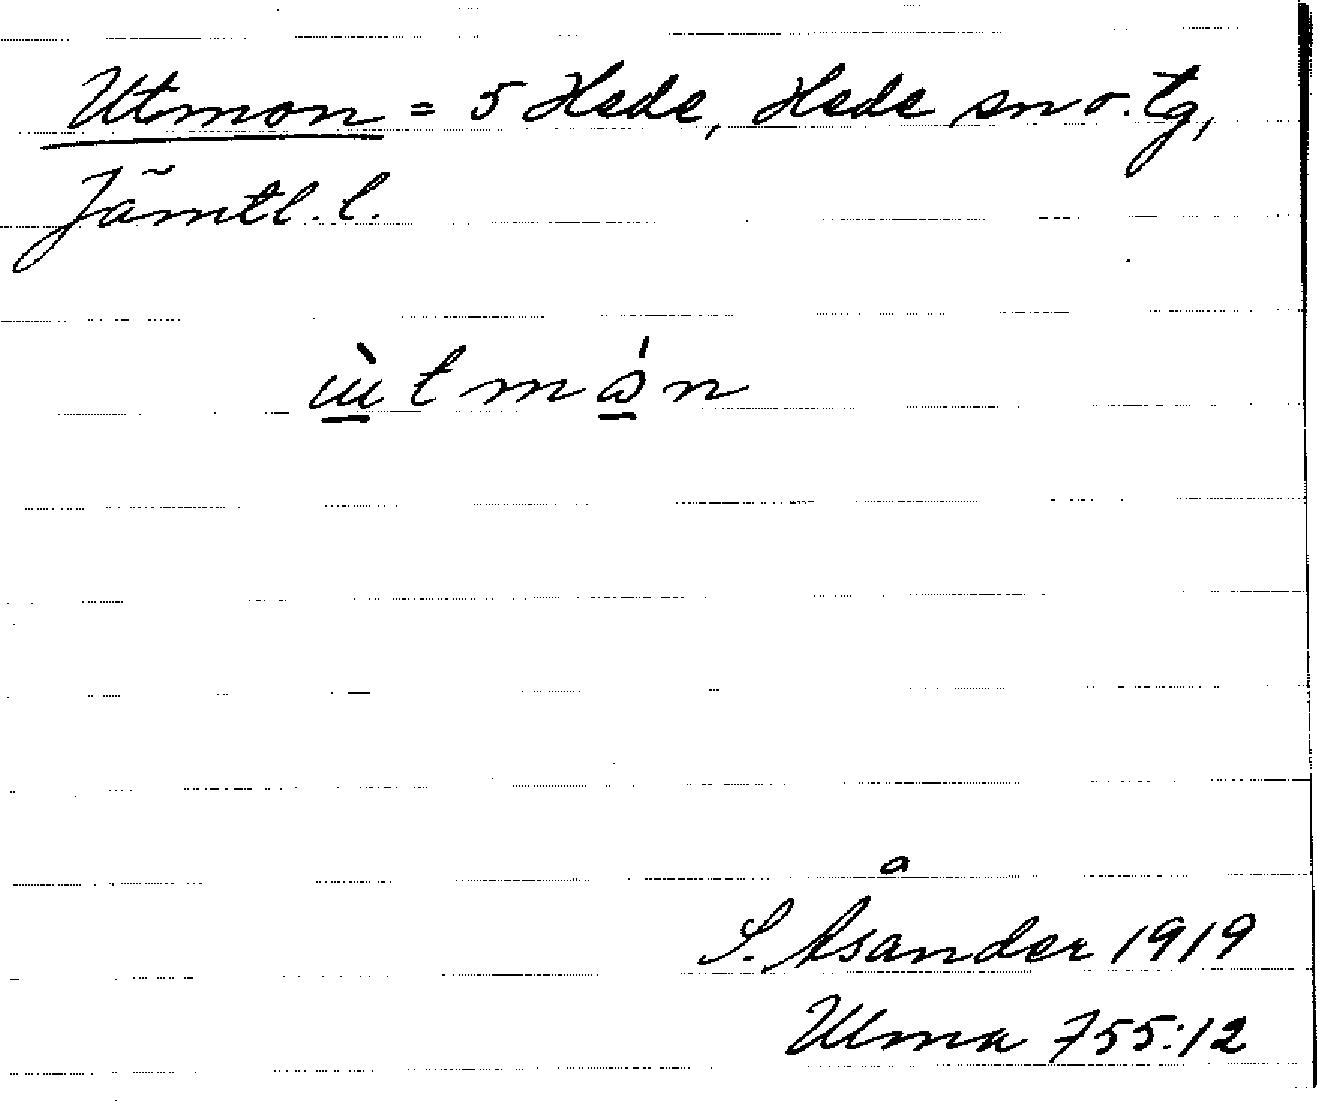 Utmon = 5 Hede, Hede sn o. tg,
Jämtl. l.
S. Åsander 1919
Ulma 755:12